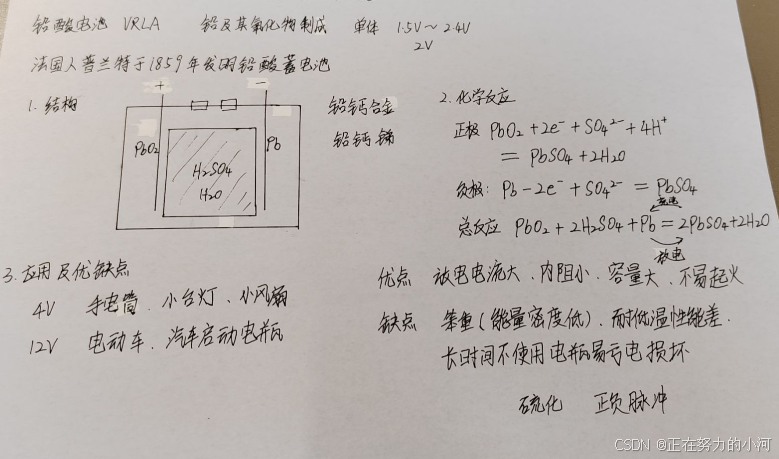 铅酸电池 VRLA 铅及其氧化物制成 单体 1.5V～2.4V
2V
法国人普兰特于1859年发明铅酸蓄电池
1. 结构
+ −
PbO₂ Pb
H₂SO₄
H₂O
铅钙合金
铅钙锑
2. 化学反应
正极 PbO₂ + 2e⁻ + SO₄²⁻ + 4H⁺
= PbSO₄ + 2H₂O
负极: Pb - 2e⁻ + SO₄²⁻ = PbSO₄
充电
总反应 PbO₂ + 2H₂SO₄ + Pb = 2PbSO₄ + 2H₂O
放电
3. 应用及优缺点
4V 手电筒、小台灯、小风扇
12V 电动车、汽车启动电瓶
优点 放电电流大、内阻小、容量大、不易起火
缺点 笨重(能量密度低)、耐低温性能差、
长时间不使用电瓶易亏电损坏
硫化 正负脉冲
CSDN @正在努力的小河